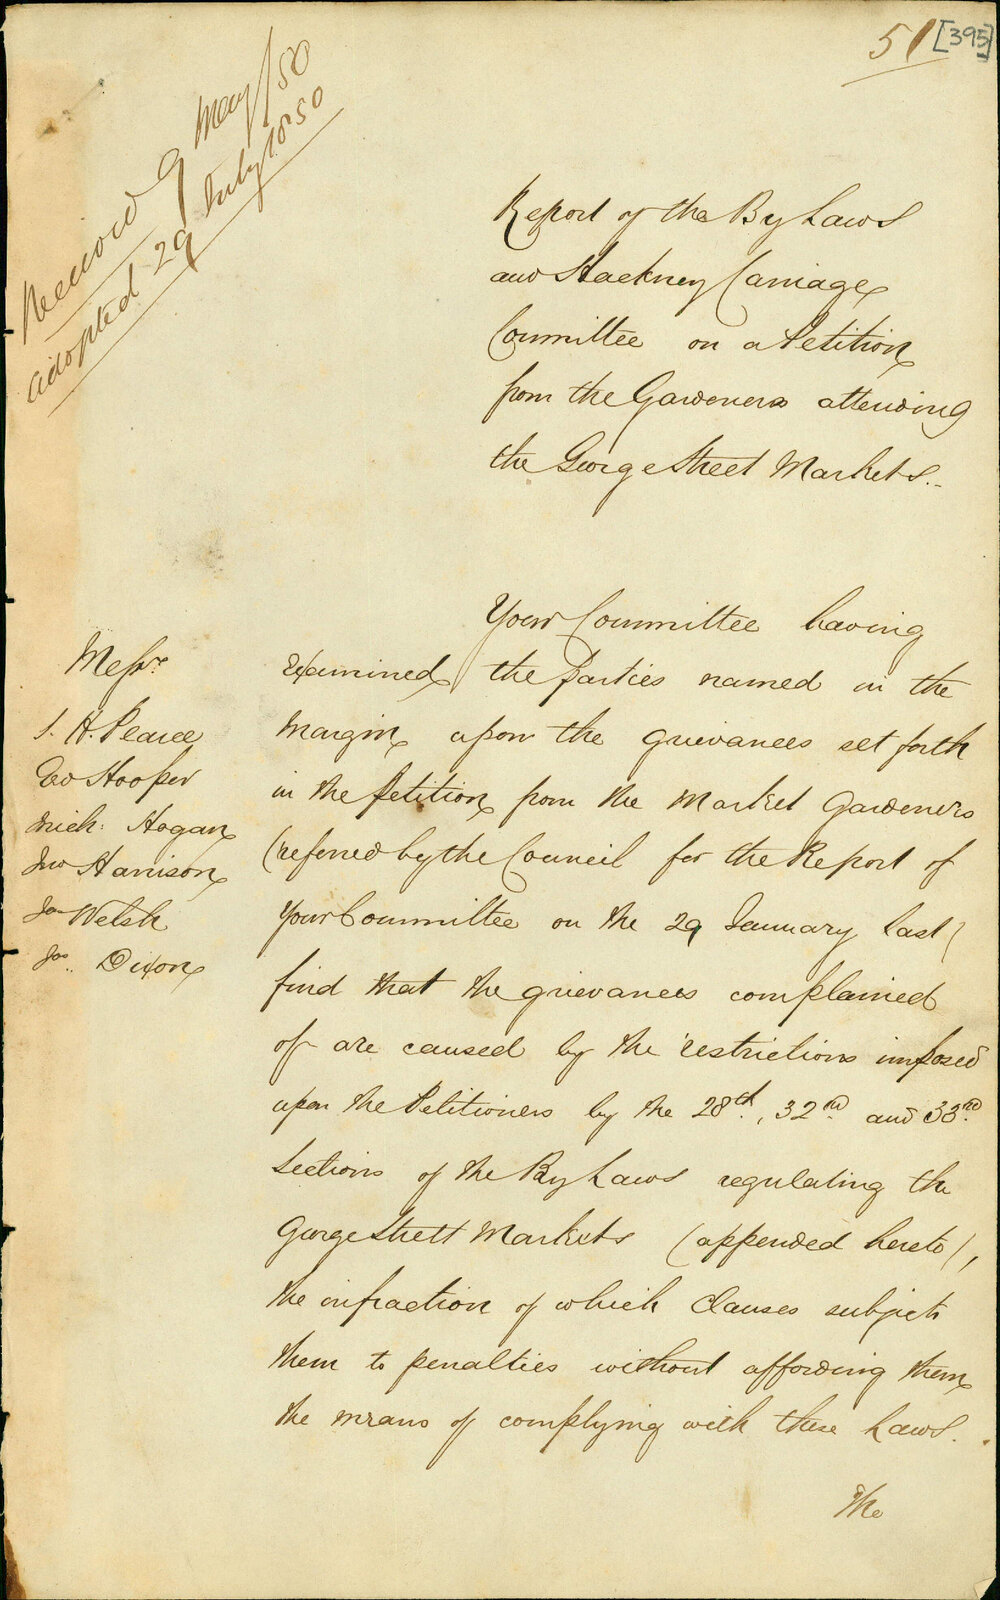 51 [395]
Received 9 May/50
adopted 29 July 1850
Report of the By Laws
and Hackney Carriage
Committee on a Petition
from the Gardeners attending
the George Street Markets.
Your Committee having
examined the parties named in the
margin, upon the grievances set forth
in the petition from the Market Gardeners
(referred by the Council for the Report of
Your Committee on the 29 January last)
find that the grievances complained
of are caused by the restrictions imposed
upon the Petitioners by the 28th, 32nd and 33rd
Sections of the By Laws regulating the
George Street Markets (appended hereto),
the infraction of which Clauses subjects
them to penalties without affording them
the means of complying with these Laws.
The
Messrs
J. H. Pearce
Geo Hooper
Mich: Hogan
Jno Harrison
Jas Welsh
Jas. Dixon